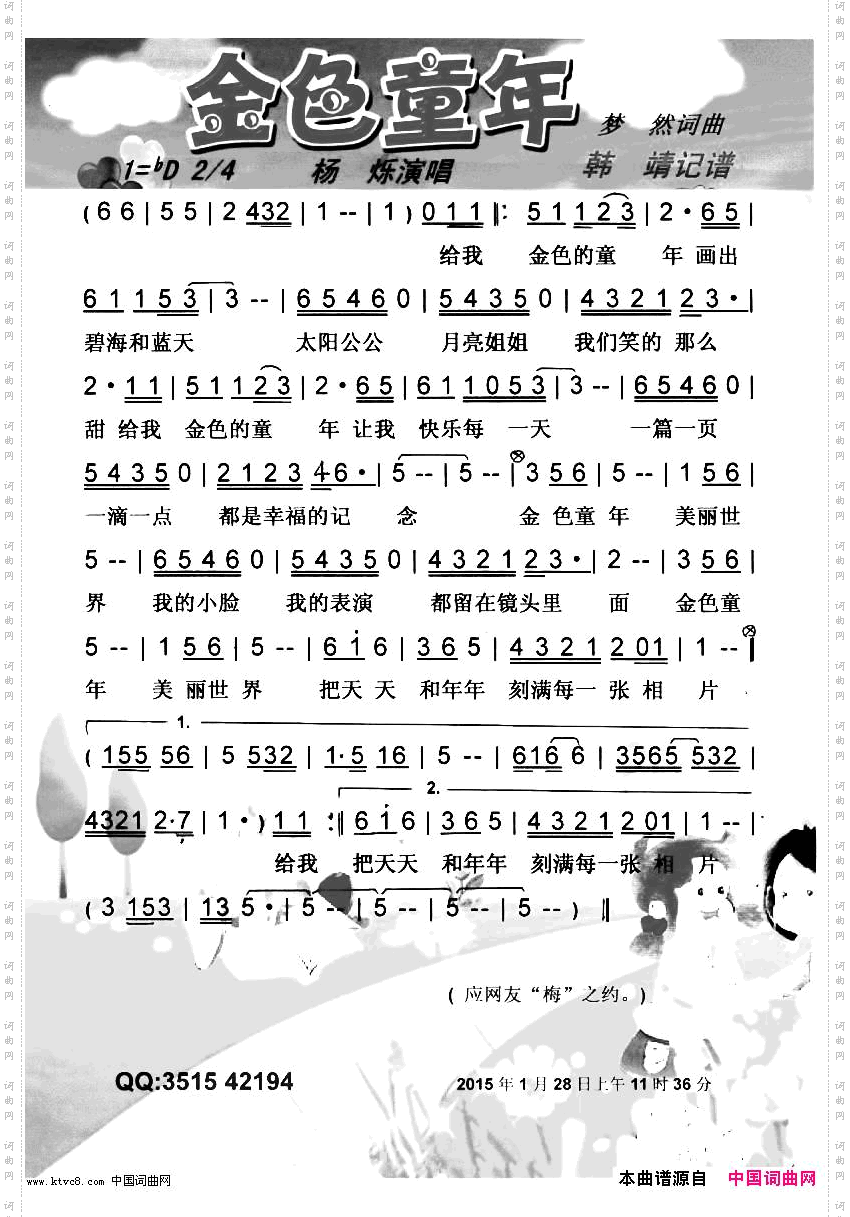 金色童年
梦 然词曲
1=bD 2/4 杨 烁演唱 韩 靖记谱
( 6 6 | 5 5 | 2 432 | 1 -- | 1 ) 0 1 1 ‖: 5 1 1 2 3 | 2 · 6 5 |
给我 金色的童 年 画出
6 1 1 5 3 | 3 -- | 6 5 4 6 0 | 5 4 3 5 0 | 4 3 2 1 2 3 · |
碧海和蓝天 太阳公公 月亮姐姐 我们笑的 那么
2 · 1 1 | 5 1 1 2 3 | 2 · 6 5 | 6 1 1 0 5 3 | 3 -- | 6 5 4 6 0 |
甜 给我 金色的童 年 让我 快乐每 一天 一篇一页
5 4 3 5 0 | 2 1 2 3 4 6 · | 5 -- | 5 -- | 3 5 6 | 5 -- | 1 5 6 |
一滴一点 都是幸福的记 念 金 色童 年 美丽世
5 -- | 6 5 4 6 0 | 5 4 3 5 0 | 4 3 2 1 2 3 · | 2 -- | 3 5 6 |
界 我的小脸 我的表演 都留在镜头里 面 金色童
5 -- | 1 5 6 | 5 -- | 6 i 6 | 3 6 5 | 4 3 2 1 2 0 1 | 1 -- |
年 美 丽世 界 把天 天 和年年 刻满每一 张 相 片
1.
( 155 56 | 5 532 | 1·5 16 | 5 -- | 616 6 | 3565 532 |
2.
4321 2·7 | 1 · ) 1 1 :‖ 6 i 6 | 3 6 5 | 4 3 2 1 2 0 1 | 1 -- |
给我 把天天 和年年 刻满每一张 相 片
( 3 153 | 13 5 · | 5 -- | 5 -- | 5 -- | 5 -- ) ‖
( 应网友“梅”之约。)
QQ:3515 42194
2015 年 1 月 28 日上午 11 时 36 分
www.ktvc8.com 中国词曲网
本曲谱源自 中国词曲网